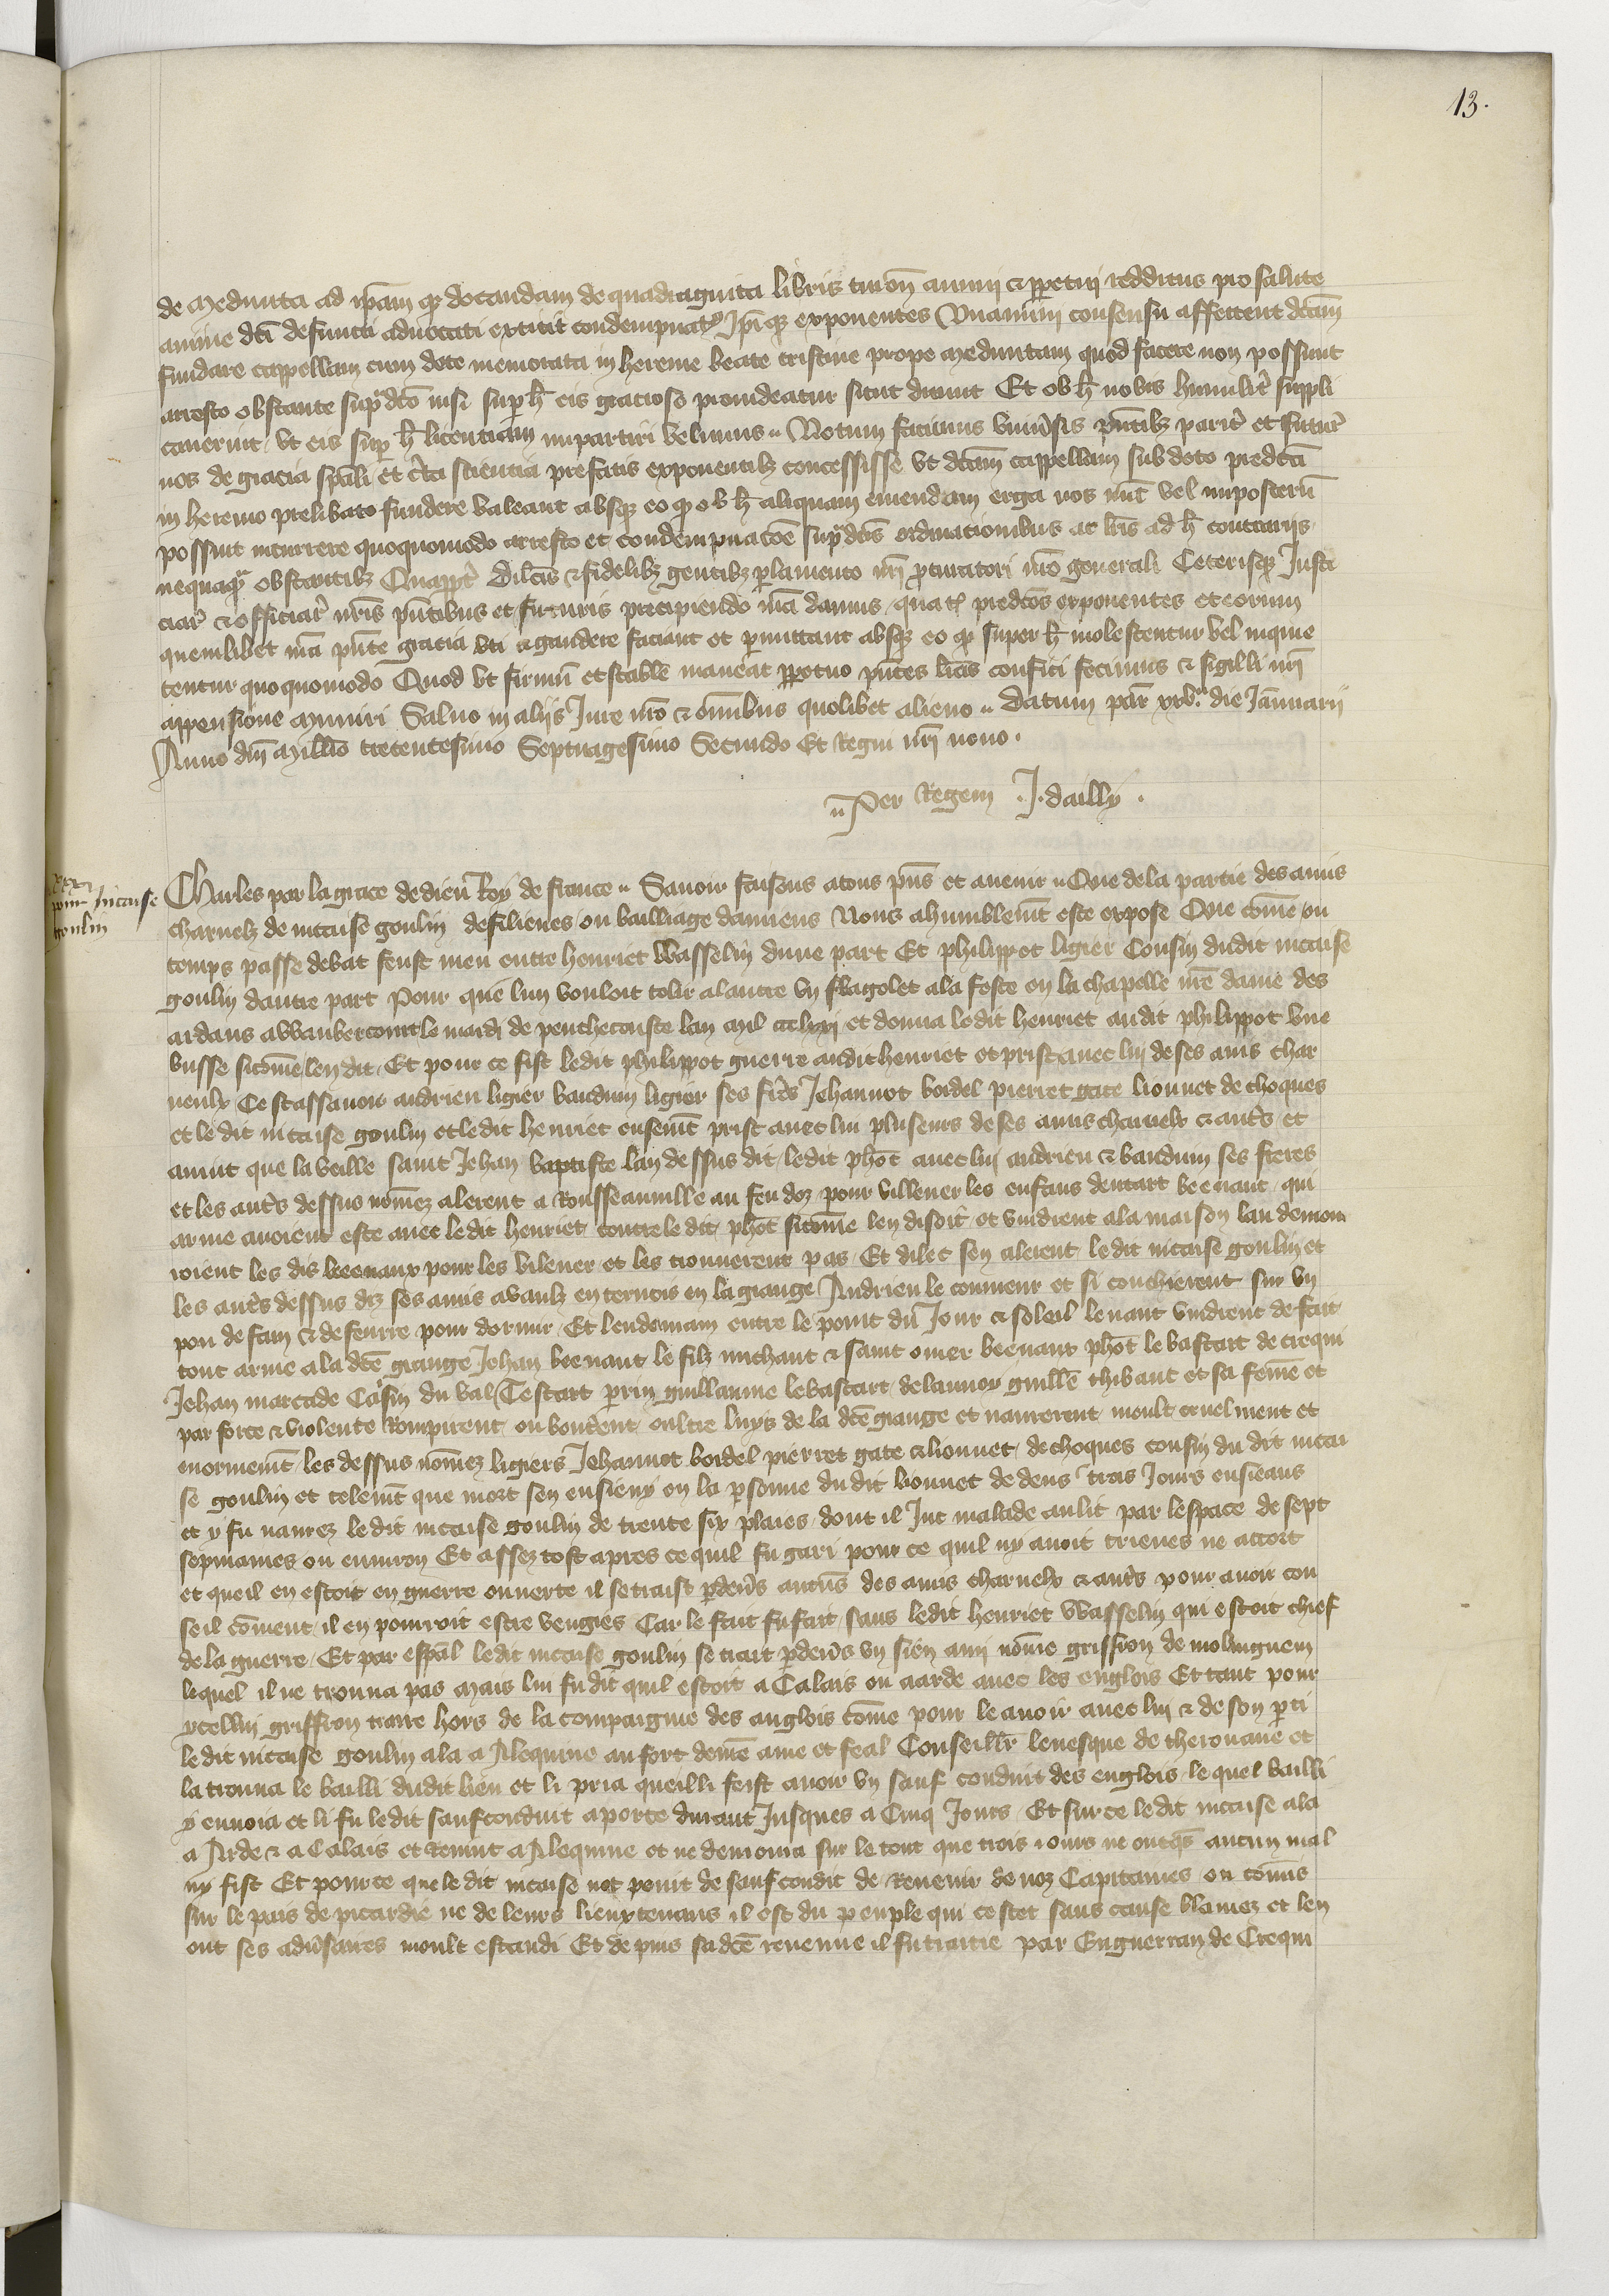 13.
de Medunta ad ip̄am q̄ dotandam de quadraginta libris turoñ annui & ꝑpetui redditus pro salute
anime dc̄i defuncti advocati extitit condempnatꝰ Ip̄iq̄ exponentes Unanimi consensu affectent dc̄am
fundare cappellam cum dote memorata in hereme beate cristine prope Meduntam quod facere non possunt
arresto obstante supᵃdc̄o nisi suꝑ h̄ eis graciose provideatur sicut dicunt Et ob h̄ nobis humilit̄ suppli
caverunt / ut eis suꝑ h̄ licentiam impartiri velimus // Notum facimus univ̄sis p̄ntibȝ parit̄ et futur̄
nos de gracia sp̄ali et c̄ta scientia prefatis exponentibȝ concessisse ut dc̄am cappellam sub dote predc̄a
in heremo prelibato fundere valeant absqȝ eo q̄ ob h̄ aliquam emendam erga nos nūc vel imposterū
possint incurrere quoquomodo arresto et condempnac̄oe supᵃdc̄is ordinationibus ac lr̄is ad h̄ contrariis
nequaqᵃ obstantibȝ Quapp̄t̄ dilc̄is & fidelibȝ gentibȝ ꝑlamento nr̄i ꝓcuratori nr̄o generali Ceterisqȝ Justi
ciar̄ & officiar̄ nr̄is p̄ntibus et futuris precipiendo m̄a damus / quatꝰ predc̄os exponentes et eorum
quemlibet nr̄a p̄nte gracia uti & gaudere faciant et ꝑmittant absqȝ eo q̄ super h̄ molestentur vel inquie
tentur quoquomodo Quod ut firmū et stabile maneat ꝑpetuo p̄ntes lr̄as confici fecimus & sigilli nr̄i
appensione Muniri Salvo in aliis Jure nr̄o & om̄ibus quolibet alieno // Datum par̄ xxvᵃ die Januarii
Anno dn̄i Millo trecentesimo Septuagesimo Secundo Et Regni nr̄i nono .
// Per Regem . J. dailly .
pour nicaise
goulin
Charles par la grace de dieu Roy de france // Savoir faisons a tous p̄ns et avenir // Que de la partie des amis
charnelz de nicaise goulin de filieues ou bailliage damiens Nous a humblem̄t este expose Que com̄e ou
temps passe debat feust meu entre henriet Wasselin dune part Et philippot ligier Cousin dudit nicaise
goulin dautre part Pour que lun vouloit tolir a lautre un flagolet a la feste en la chapelle nr̄e dame des
ardans a Wanbercourt le mardi de penthecouste lan Mil ccclxxi et donna ledit henriet audit philippot une
busse si com̄e len dit / Et pour ce fist ledit philippot guerre audit henriet et prist avec lui de ses amis char
neulx Cest assavoir andrieu ligier baudum ligier ses fr̄es Jehannot bordel pierret gate lionnet de choques
et ledit nicaise goulin et ledit henriet ensem̄t prist avec lui pluseurs de ses amis charnelx & aut̄s et
avint que la veille saint Jehan baptiste lan dessus dit / ledit ph̄ot avec lui andrieu & baudum ses freres
et les aut̄s dessus nōmez alerent a Rousseauville au feu dez / pour villener les enfans deutart beenaut / qui
arme avoient este avec ledit henriet contre ledit ph̄ot si com̄e len disoit et vindrent a la maison lau demou
roient les dis beenaux pour les vilener et les trouverent pas / Et dilec sen alerent ledit nicaise goulin et
les aut̄s dessus dz ses amis avaulx en ternois en la grange Andrieu le conneur et si couchierent sur un
pou de fain & de feurre pour dormir / Et lendemain entre le point du Jour & soleil levant vindrent de fait
tout arme a la dc̄e grange Jehan beenaut le filz michaut & saint omer beenaut ph̄ot le bastart de crequi
Jehan marcade Casin du val Testart ꝑrin guillaume le bastart de launoy guill̄e thibaut et sa fem̄e et
par force & violente Rompirent ou bouterent oultre luys de la dc̄e grange et navrerent moult cruelment et
enormem̄t / les dessus nōmez ligiers Jehannot bordel pierret gate & lionnet de choques cousin du dit nicai
se goulin et telem̄t que mort sen ensievy en la ꝑsonne dudit lionnet dedens tras Jours ensieuans
et y fu navrez ledit nicaise goulin de trente six plaies / dont il Jut malade au lit par lespace de sept
sepmaines ou environ Et assez tost apres ce quil fu gari pour ce quil ny avoit trieues ne accort
et que il en estoit en guerre ouverte il se traist ꝑ dev̄s aucūs des amis charnelx & aut̄s pour avoir con
seil cōment / il en pourroit estre vengies Car le fait fu fait / sans ledit henriet Wasselin qui estoit chief
de la guerre / Et par esp̄al ledit nicaise goulin se trait ꝑ dev̄s un sien ami nōme griffion de molinguem
lequel il ne trouva pas Mais lui fu dit quil estoit a Calais ou a arde avec les englois Et tant pour
ycellui griffion traire hors de la compaignie des anglois cōme pour le avoir avec lui & de son ꝑti
ledit nicaise goulin ala a Alequine au fort de nr̄e ame et feal Conseillr̄ levesque de therouane et
la trouva le bailli dudit lieu et li pria que il li feist avoir un sauf conduit des englois / le quel bailli
y envoia et li fu ledit saufconduit aporte durant Jusques a Cinq Jours / Et sur ce ledit nicaise ala
a Arde & a Calais et Revint a Alequine et ne demoura sur le tout que trois iours ne onq̄s aucun mal
ny fist Et pour ce que le dit nicaise not point de saufcondit de Revenir de noz Capitaines ou com̄is
sur le pais de picardie ne de leurs lieuxtenans il est du peuple qui ce scet sans cause blamez et len
ont ses adv̄saires moult escandi Et depuis sa dc̄e revenue il fu traitie par Enguerran de Crequi